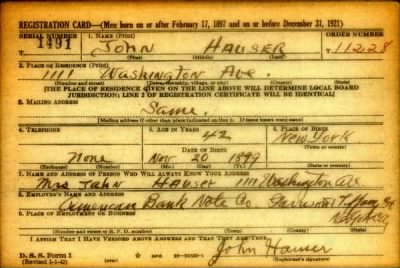 REGISTRATION CARD—(Men born on or after February 17, 1897 and on or before December 31, 1921)
SERIAL NUMBER 1. NAME (Print) ORDER NUMBER
1491 JOHN HAUSER 11228
(First) (Middle) (Last)
2. PLACE OF RESIDENCE (Print)
1111 Washington Ave.
(Number and street) (Town, township, village, or city) (County) (State)
[THE PLACE OF RESIDENCE GIVEN ON THE LINE ABOVE WILL DETERMINE LOCAL BOARD
JURISDICTION; LINE 2 OF REGISTRATION CERTIFICATE WILL BE IDENTICAL]
3. MAILING ADDRESS
Same
[Mailing address if other than place indicated on line 2. If same insert word same]
4. TELEPHONE 5. AGE IN YEARS 6. PLACE OF BIRTH
42 New York
DATE OF BIRTH
None Nov 20 1899
(Exchange) (Number) (Mo.) (Day) (Yr.) (State or country)
7. NAME AND ADDRESS OF PERSON WHO WILL ALWAYS KNOW YOUR ADDRESS
Mrs John Hauser 1111 Washington Ave
8. EMPLOYER'S NAME AND ADDRESS
American Bank Note Co
9. PLACE OF EMPLOYMENT OR BUSINESS
(Number and street or R. F. D. number) (Town) (County) (State)
I AFFIRM THAT I HAVE VERIFIED ABOVE ANSWERS AND THAT THEY ARE TRUE.
D. S. S. Form 1
(Revised 1-1-42)
John Hauser